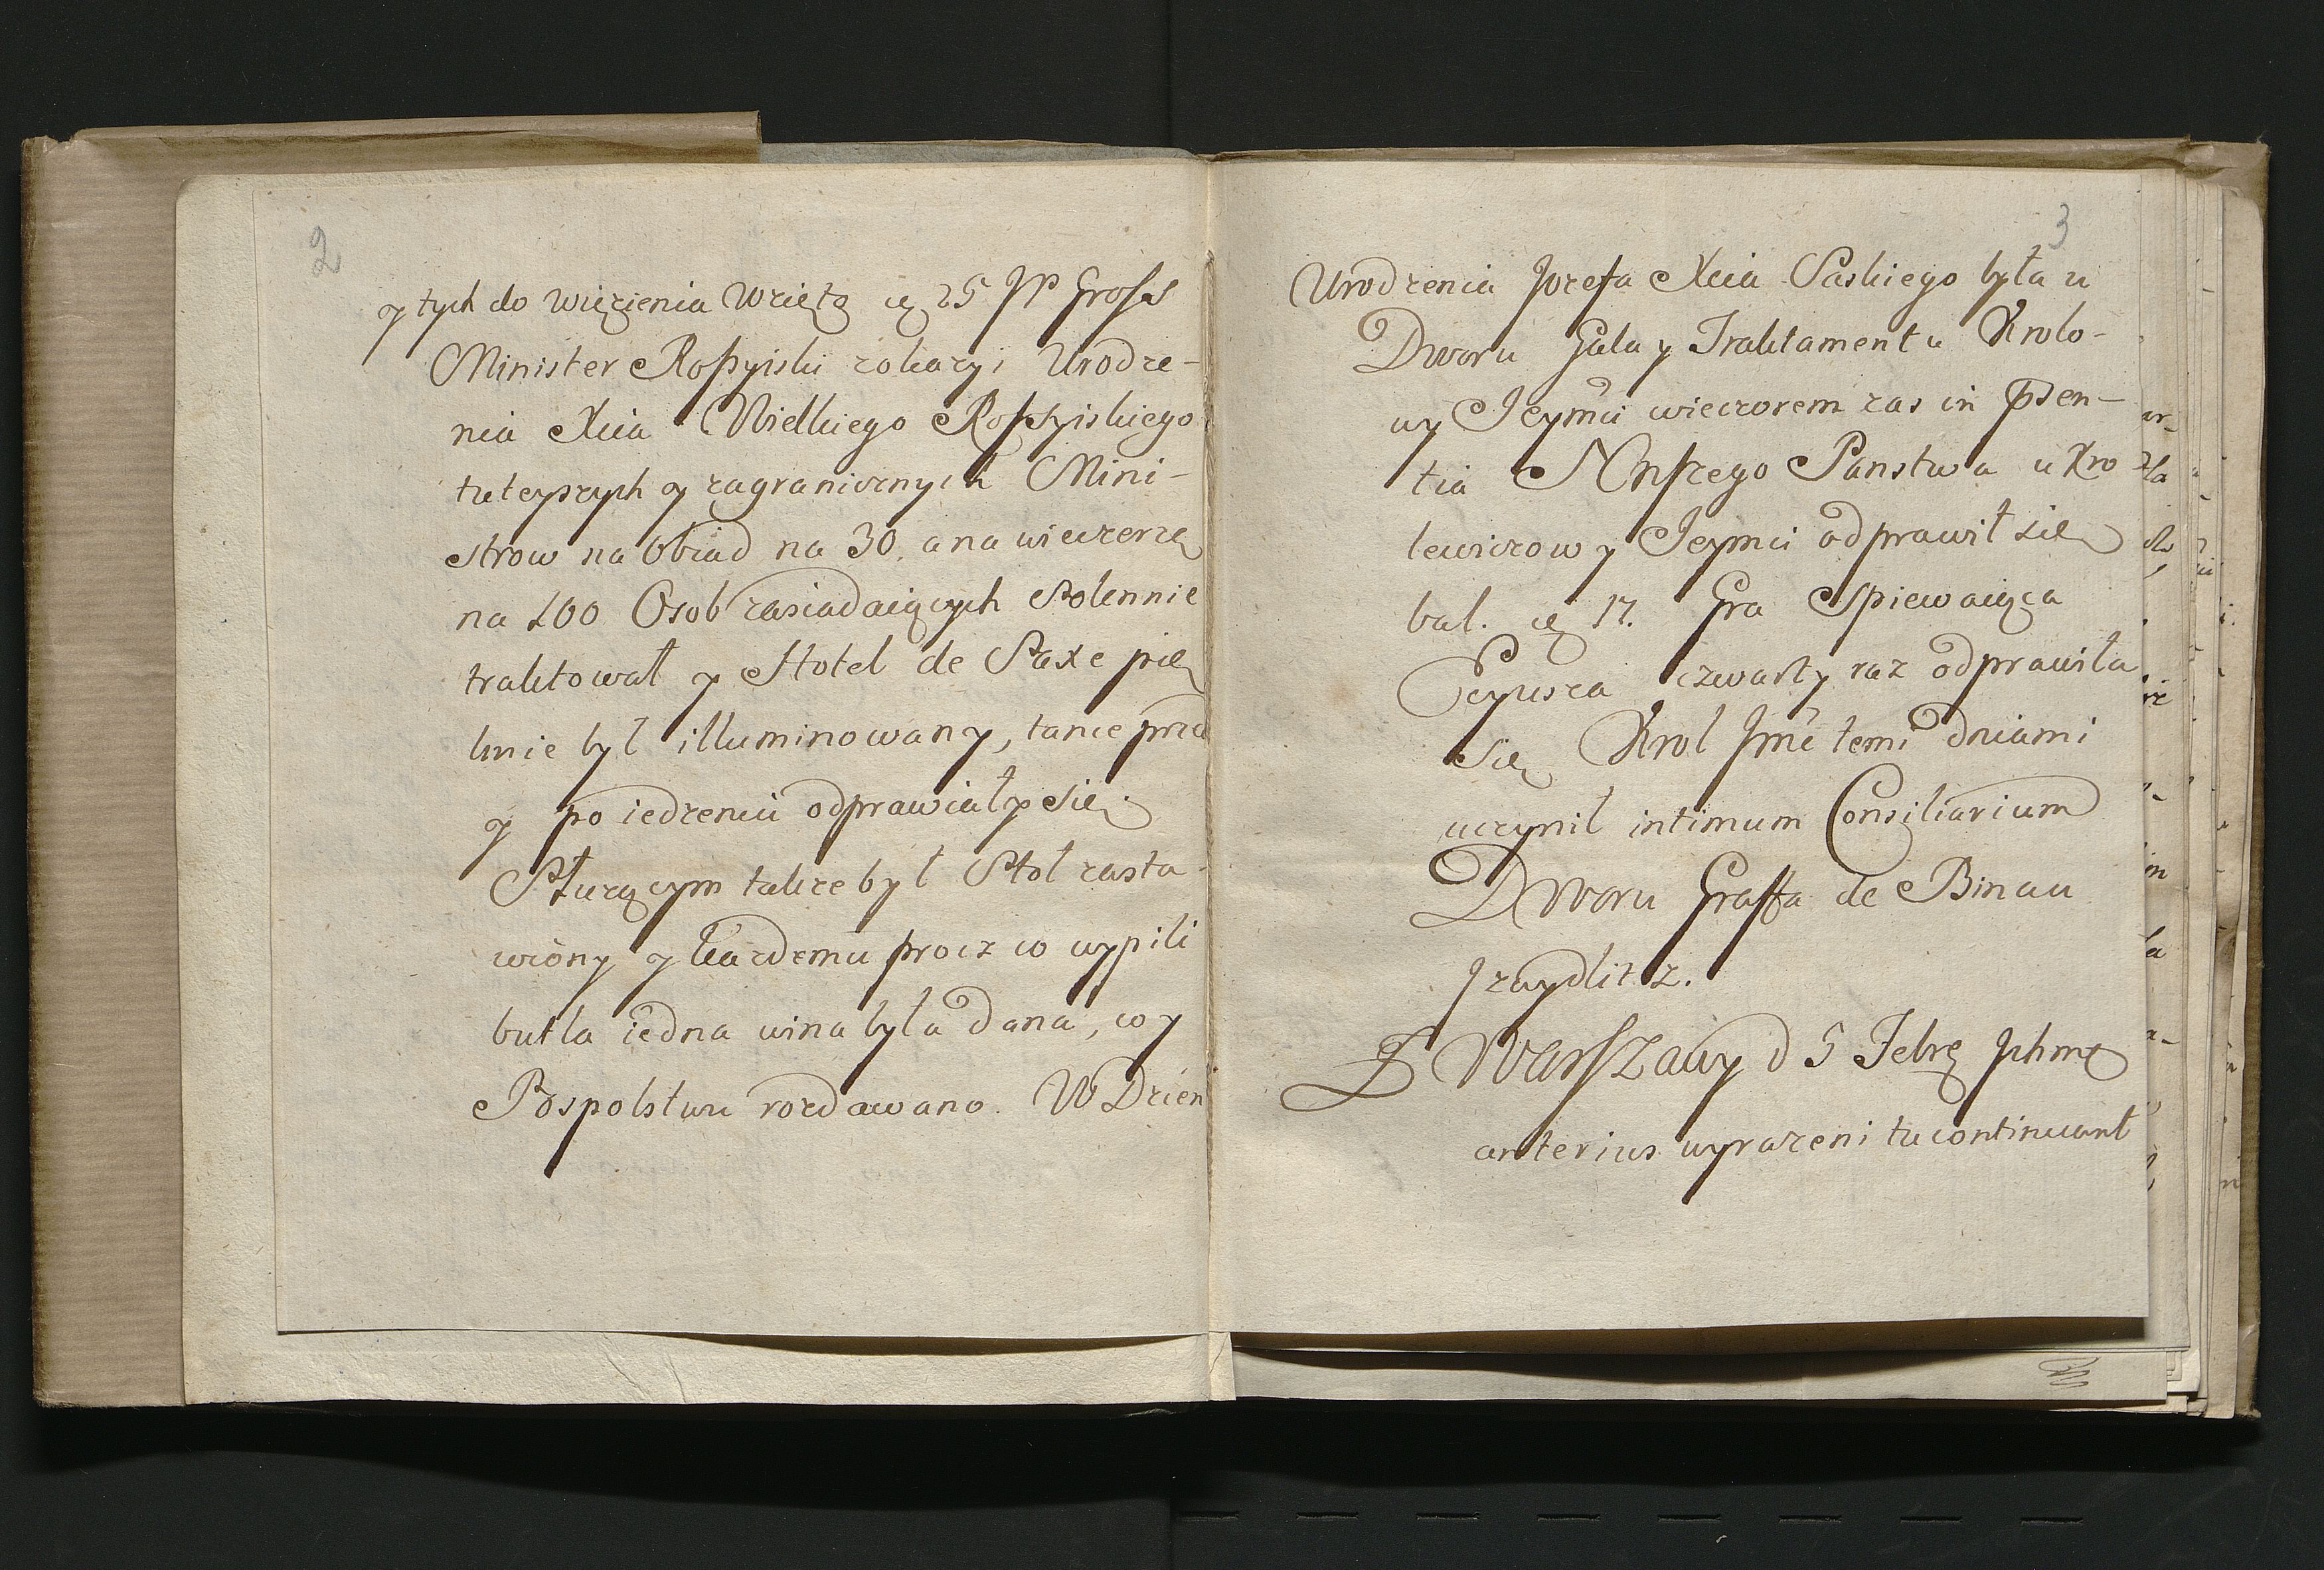 2
y tych do więzienia wzięto ię 25 JP Gross
Minister Rossyiski z okazyi Urodze-
nia Xcia Wielkiego Rossyiskiego
tuteyszych y zagranicznych Mini-
strow na obiad na 30. a na wieczerzę
na 100 Osob zasiadaiących Solennie
traktował y Hotel de Saxe pię
knie był illuminowany, tance przed
y po iedzeniu odprawiały się.
Służącym takze był Stoł zasta-
wiony y kazdemu procz co wypili
butla iedna wina była dana, co y
Pospolstwu rozdawano. W Dzien
3
Urodzenia Jozefa Xcia Saskiego była u
Dworu Gala y Traktament u Krolo-
wy Jeymci wieczorem zas in Psen-
tia NNszego Panstwa u Kro
lewiczowy Jeymci odprawił się
bal. ię 17. Gra Spiewaiąca
Zeyusza czwarty raz odprawiła
się Krol Jmć temi dniami
uczynil intimum Consiliarium
Dworu Graffa de Binau
z Warszawy d 5 Febrę
anterius wyrazeni tu continuant